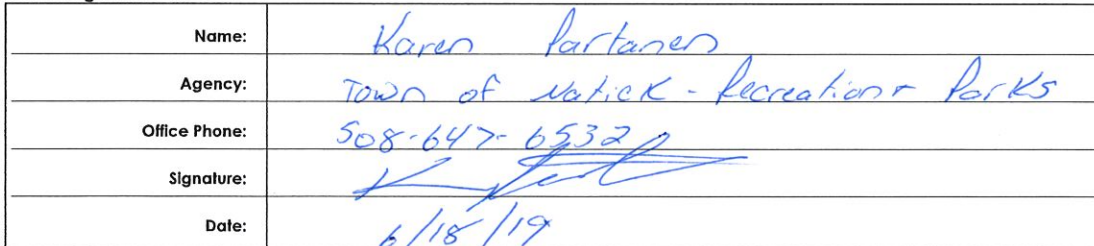 Name: Karen Partanen
Agency: Town of Natick - Recreation + Parks
Office Phone: 508-647-6532
Signature:
Date: 6/18/19